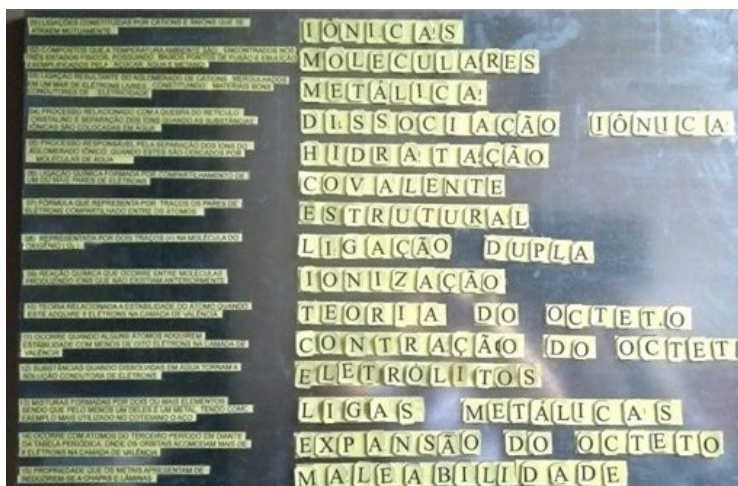 01) LIGAÇÕES CONSTITUÍDAS POR CÁTIONS E ÂNIONS QUE SE
ATRAEM MUTUAMENTE.
IÔNICAS
02) COMPOSTOS QUE A TEMPERATURA AMBIENTE SÃO ENCONTRADOS NOS
TRÊS ESTADOS FÍSICOS, POSSUINDO BAIXOS PONTOS DE FUSÃO E EBULIÇÃO
EXEMPLIFICADOS PELA AÇÚCAR, ÁGUA E METANO.
MOLECULARES
03) LIGAÇÃO RESULTANTE DO AGLOMERADO DE CÁTIONS MERGULHADOS
EM UM MAR DE ELÉTRONS LIVRES, CONSTITUINDO MATERIAIS BONS
CONDUTORES DE ELETRICIDADE
METÁLICA
04) PROCESSO RELACIONADO COM A QUEBRA DO RETÍCULO
CRISTALINO E SEPARAÇÃO DOS IONS QUANDO AS SUBSTÂNCIAS
IÔNICAS SÃO COLOCADAS EM ÁGUA
DISSOCIAÇÃO IÔNICA
05) PROCESSO RESPONSÁVEL PELA SEPARAÇÃO DOS IONS DO
AGLOMERADO IÔNICO, QUANDO ESTES SÃO CERCADOS POR
MOLÉCULAS DE ÁGUA
HIDRATAÇÃO
06) LIGAÇÃO QUÍMICA FORMADA POR COMPARTILHAMENTO DE
UM OU MAIS PARES DE ELÉTRONS
COVALENTE
07) FÓRMULA QUE REPRESENTA POR TRAÇOS OS PARES DE
ELÉTRONS COMPARTILHADO ENTRE OS ÁTOMOS
ESTRUTURAL
08) REPRESENTADA POR DOIS TRAÇOS (=) NA MOLÉCULA DO
OXIGÊNIO (O₂)
LIGAÇÃO DUPLA
09) REAÇÃO QUÍMICA QUE OCORRE ENTRE MOLÉCULAS
PRODUZINDO IONS QUE NÃO EXISTIAM ANTERIORMENTE
IONIZAÇÃO
10) TEORIA RELACIONADA A ESTABILIDADE DO ÁTOMO QUANDO
ESTE ADQUIRE 8 ELÉTRONS NA CAMADA DE VALÊNCIA
TEORIA DO OCTETO
11) OCORRE QUANDO ALGUNS ÁTOMOS ADQUIREM
ESTABILIDADE COM MENOS DE OITO ELÉTRONS NA CAMADA DE
VALÊNCIA
CONTRAÇÃO DO OCTET
12) SUBSTÂNCIAS QUANDO DISSOLVIDAS EM ÁGUA TORNAM A
SOLUÇÃO CONDUTORA DE ELÉTRONS
ELETRÓLITOS
13) MISTURAS FORMADAS POR DOIS OU MAIS ELEMENTOS
SENDO QUE PELO MENOS UM DELES É UM METAL, TENDO COMO
EXEMPLO MAIS UTILIZADO NO COTIDIANO O AÇO
LIGAS METÁLICAS
14) OCORRE COM ÁTOMOS DO TERCEIRO PERÍODO EM DIANTE
DA TABELA PERIÓDICA, ONDE OS ORBITAIS ACOMODAM MAIS DE
8 ELÉTRONS NA CAMADA DE VALÊNCIA
EXPANSÃO DO OCTETO
15) PROPRIEDADE QUE OS METAIS APRESENTAM DE
REDUZIREM-SE A CHAPAS E LÂMINAS
MALEABILIDADE